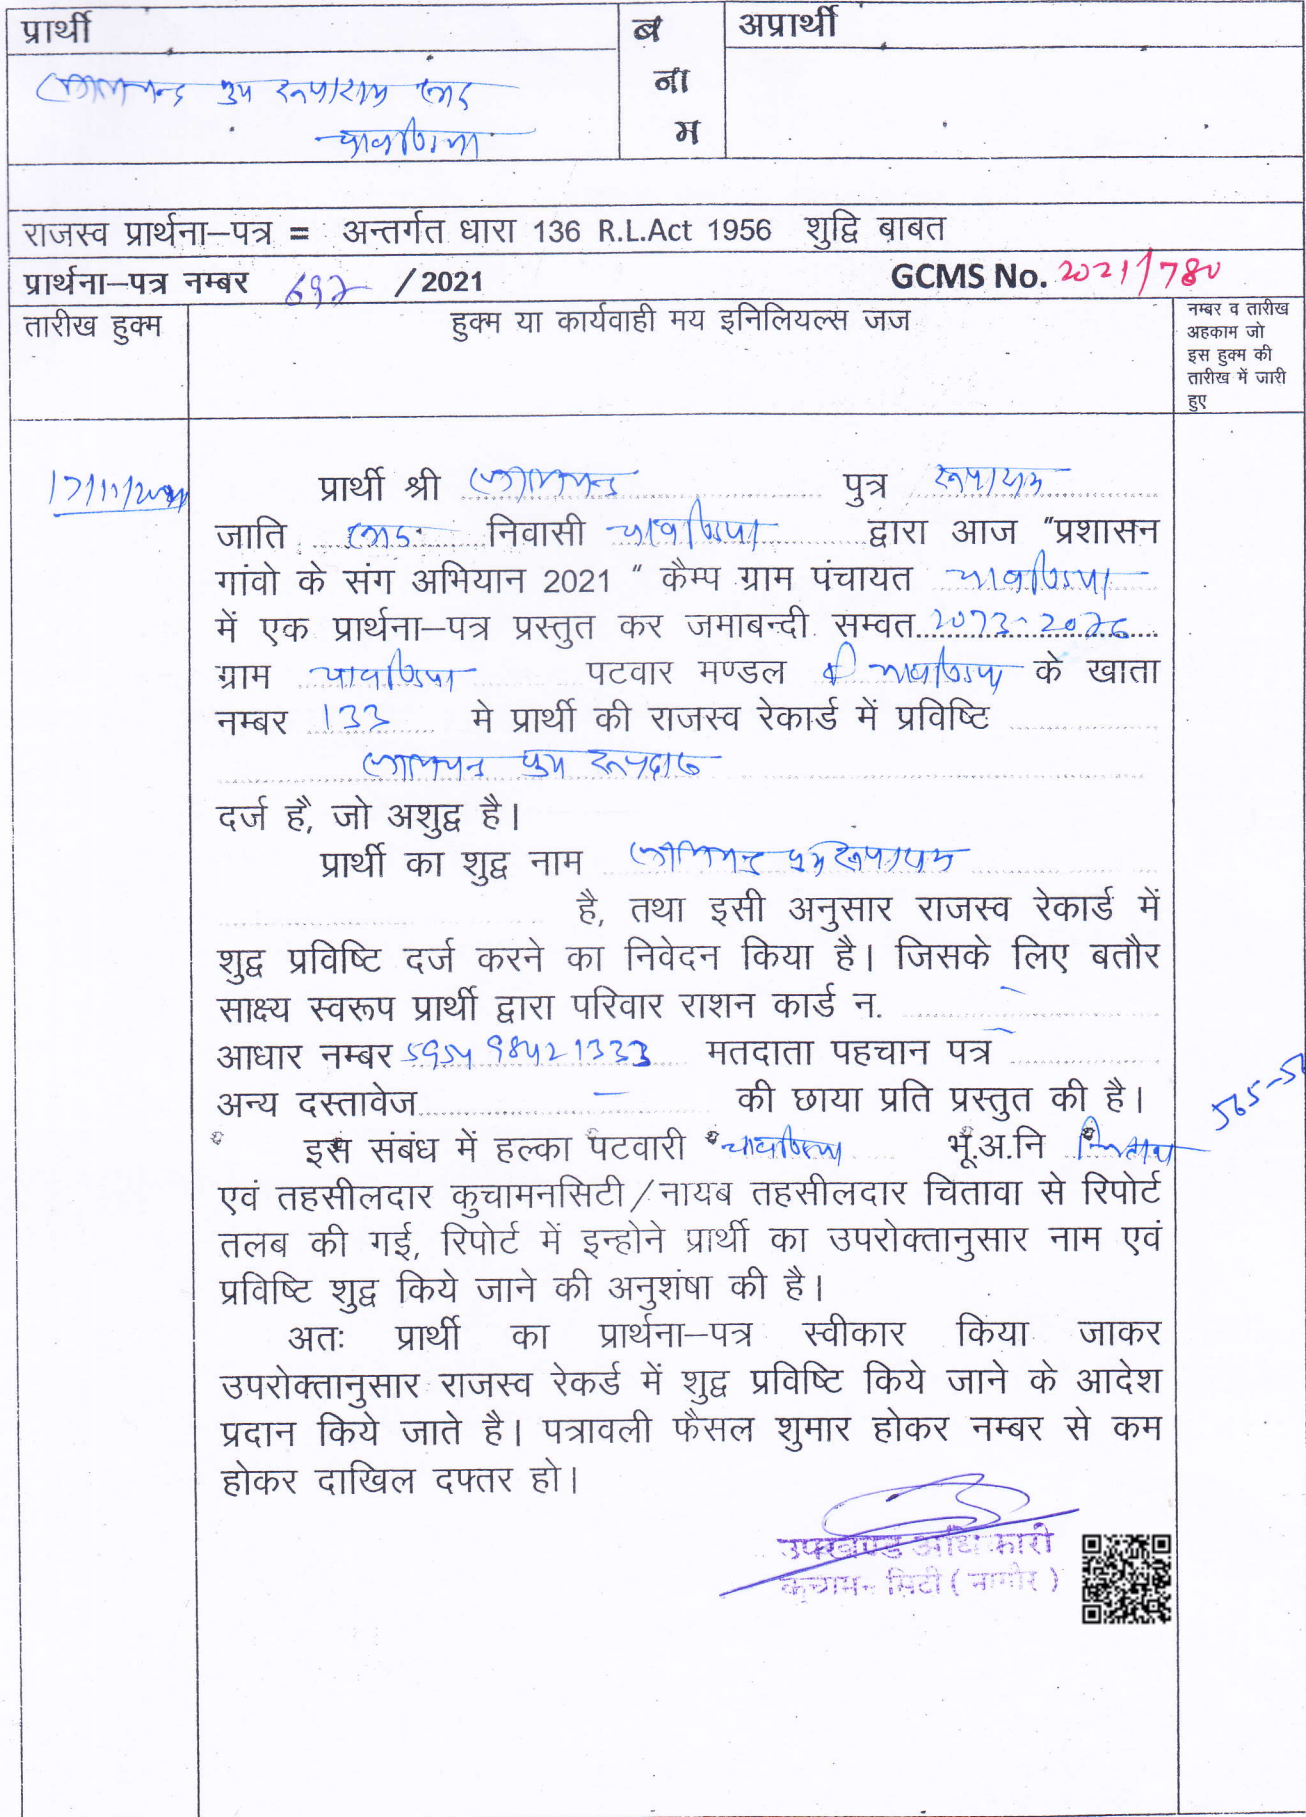 प्रार्थी
ब
ना
म
अप्रार्थी
राजस्व प्रार्थना–पत्र = अन्तर्गत धारा 136 R.L.Act 1956 शुद्वि बाबत
प्रार्थना–पत्र नम्बर /2021 GCMS No. 2021/780
तारीख हुक्म
हुक्म या कार्यवाही मय इनिलियल्स जज
नम्बर व तारीख
अहकाम जो
इस हुक्म की
तारीख में जारी
हुए
प्रार्थी श्री पुत्र रूपाराम
जाति निवासी द्वारा आज "प्रशासन
गांवो के संग अभियान 2021 " कैम्प ग्राम पंचायत
में एक प्रार्थना–पत्र प्रस्तुत कर जमाबन्दी सम्वत 2073-2076
ग्राम पटवार मण्डल के खाता
नम्बर 133 मे प्रार्थी की राजस्व रेकार्ड में प्रविष्टि
पुत्र
दर्ज है, जो अशुद्व है।
प्रार्थी का शुद्व नाम पुत्र रूपाराम
है, तथा इसी अनुसार राजस्व रेकार्ड में
शुद्व प्रविष्टि दर्ज करने का निवेदन किया है। जिसके लिए बतौर
साक्ष्य स्वरूप प्रार्थी द्वारा परिवार राशन कार्ड न. –
आधार नम्बर मतदाता पहचान पत्र –
अन्य दस्तावेज – की छाया प्रति प्रस्तुत की है।
इस संबंध में हल्का पटवारी भू.अ.नि
एवं तहसीलदार कुचामनसिटी/नायब तहसीलदार चितावा से रिपोर्ट
तलब की गई, रिपोर्ट में इन्होने प्रार्थी का उपरोक्तानुसार नाम एवं
प्रविष्टि शुद्व किये जाने की अनुशंषा की है।
अतः प्रार्थी का प्रार्थना–पत्र स्वीकार किया जाकर
उपरोक्तानुसार राजस्व रेकर्ड में शुद्व प्रविष्टि किये जाने के आदेश
प्रदान किये जाते है। पत्रावली फैसल शुमार होकर नम्बर से कम
होकर दाखिल दफ्तर हो।
उपखण्ड अधिकारी
कुचामन सिटी ( नागौर )